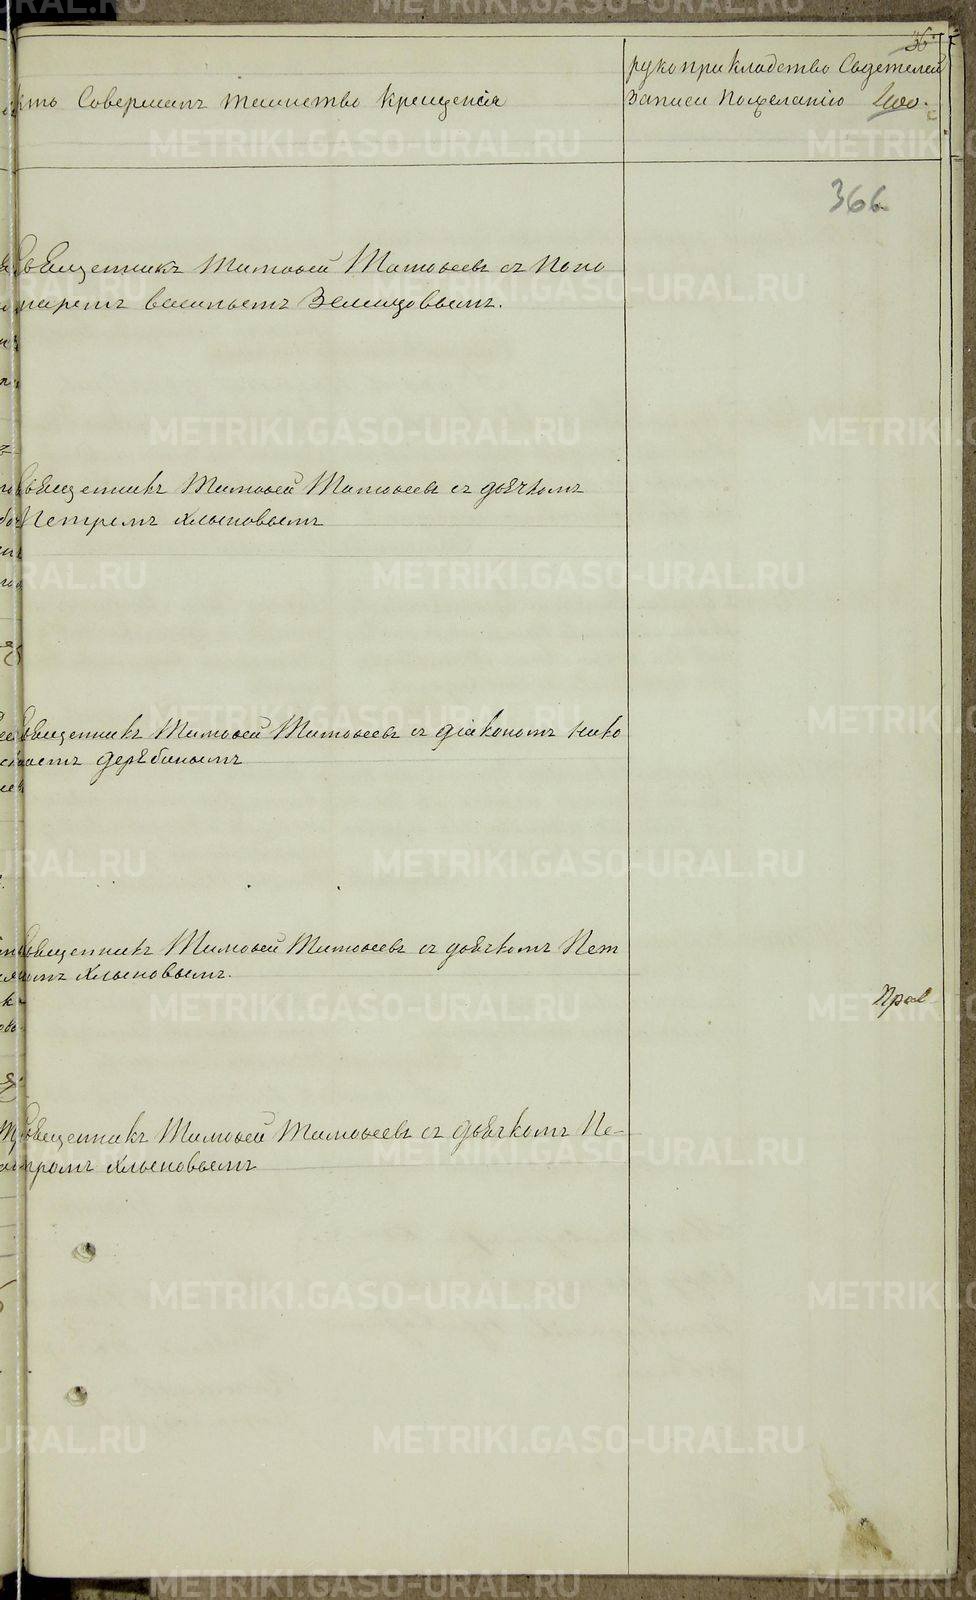 36
кто Совершалъ таинство крещенія
рукоприкладство Свдетелей
Записи Пожеланію
366
Священникъ Тимофей Тимофеевъ съ Поно
маремъ васильемъ Земляцовымъ.
Священникъ Тимофей Тимофеевъ съ дьячкомъ
Петромъ Хлыновымъ
Священникъ Тимофей Тимофеевъ съ діакономъ нико
лаемъ дерябинымъ
Священникъ Тимофей Тимофеевъ съ дьячкомъ Пет
ромъ Хлыновымъ.
Прав
Священникъ Тимофей Тимофеевъ съ дьячкомъ Пе-
тромъ Хлыновымъ
METRIKI.GASO-URAL.RU